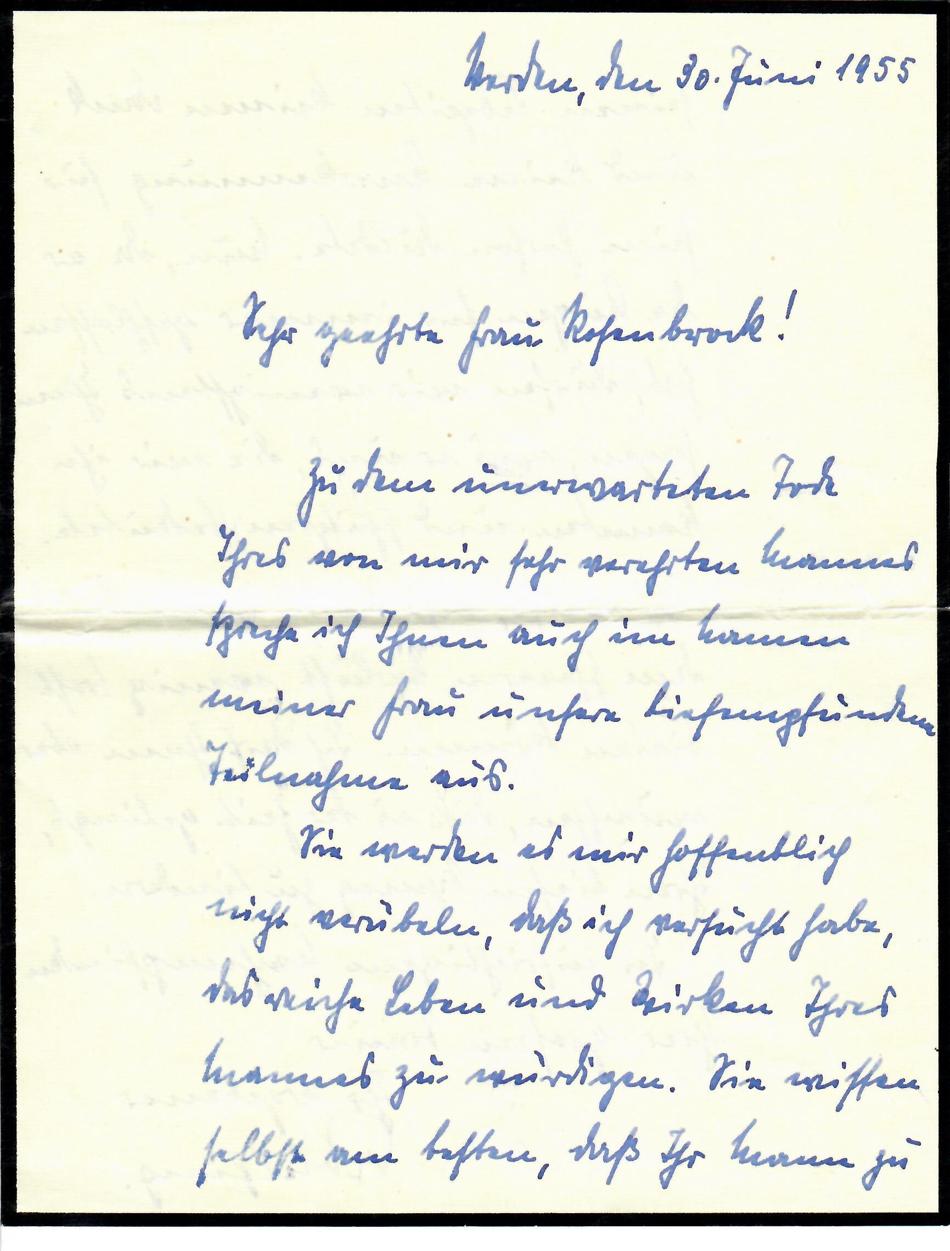 Verden, den 30. Juni 1955
Sehr geehrte Frau Rosenbrock!
Zu dem unerwarteten Tode
Ihres von mir sehr verehrten Mannes
spreche ich Ihnen auch im Namen
meiner Frau unsere tiefempfundene
Teilnahme aus.
Sie werden es mir hoffentlich
nicht verübeln, daß ich versucht habe,
das reiche Leben und Wirken Ihres
Mannes zu würdigen. Sie wissen
selbst am besten, daß Ihr Mann zu